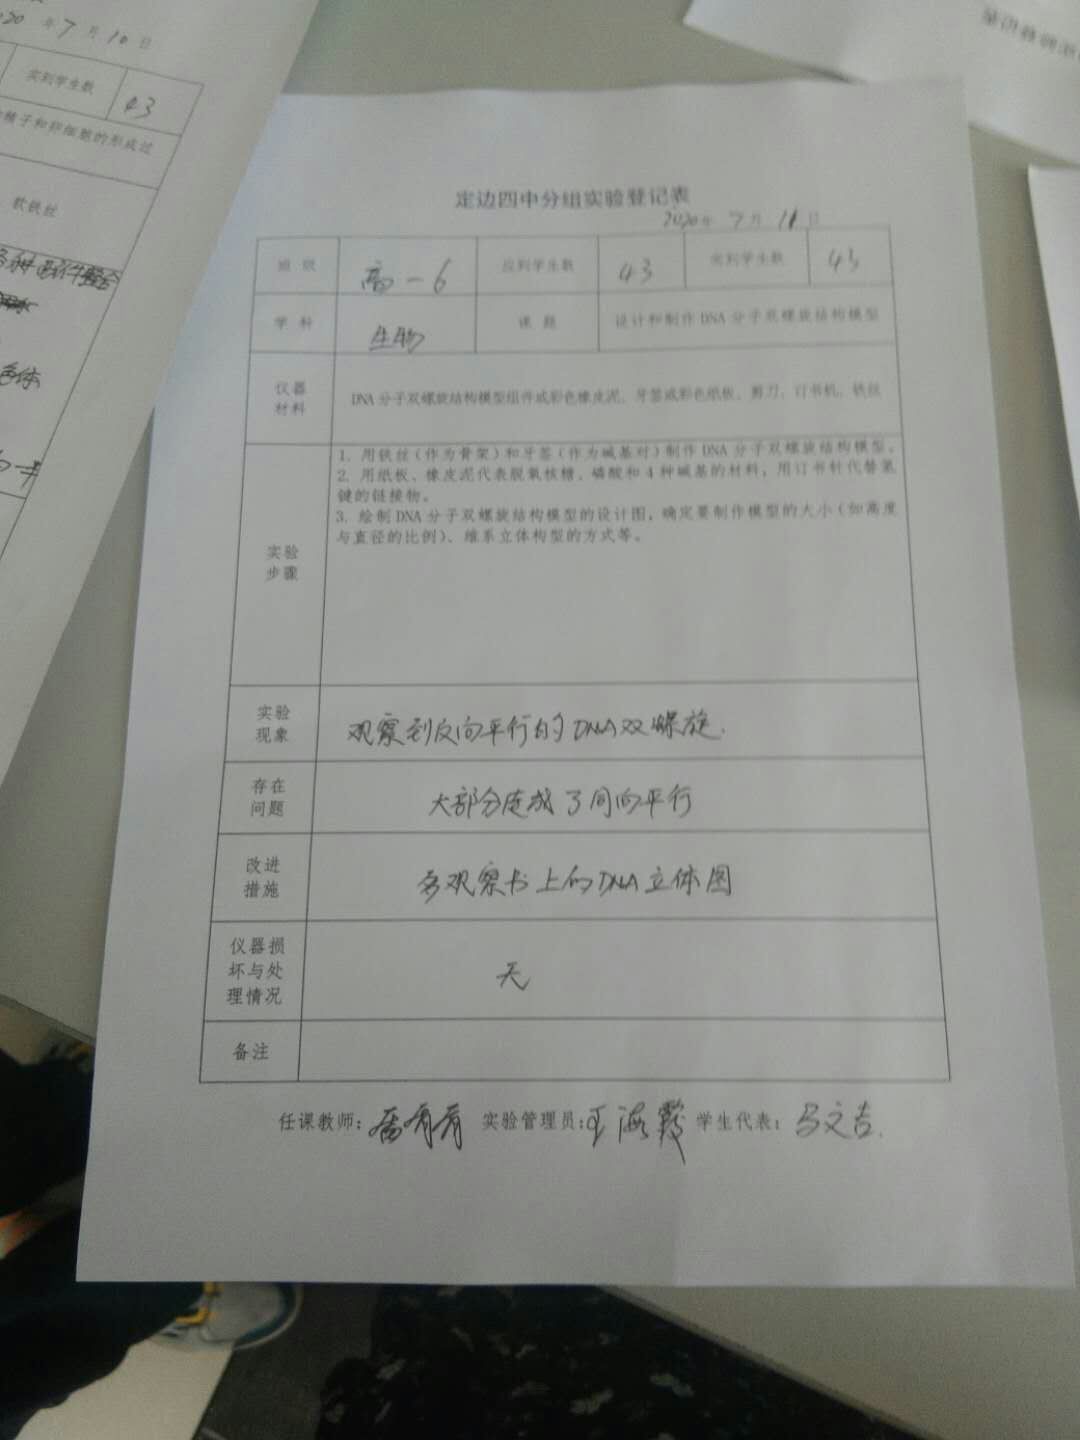 年7月10日
实到学生数 43
精子和卵细胞的形成过
软铁丝
色体
定边四中分组实验登记表
2020年 7月 11日
班 级 高一6 应到学生数 43 实到学生数 43
学 科 生物 课 题 设计和制作DNA分子双螺旋结构模型
仪器
材料
DNA分子双螺旋结构模型组件或彩色橡皮泥、牙签或彩色纸板、剪刀、订书机、铁丝
实验
步骤
1. 用铁丝(作为骨架)和牙签(作为碱基对)制作DNA分子双螺旋结构模型。
2. 用纸板、橡皮泥代表脱氧核糖、磷酸和4种碱基的材料,用订书针代替氢
键的链接物。
3. 绘制DNA分子双螺旋结构模型的设计图,确定要制作模型的大小(如高度
与直径的比例)、维系立体构型的方式等。
实验
现象
观察到反向平行的DNA双螺旋.
存在
问题
大部分连成了同向平行
改进
措施
多观察书上的DNA立体图
仪器损
坏与处
理情况
无
备注
任课教师: 实验管理员:王海霞 学生代表:马文吉.